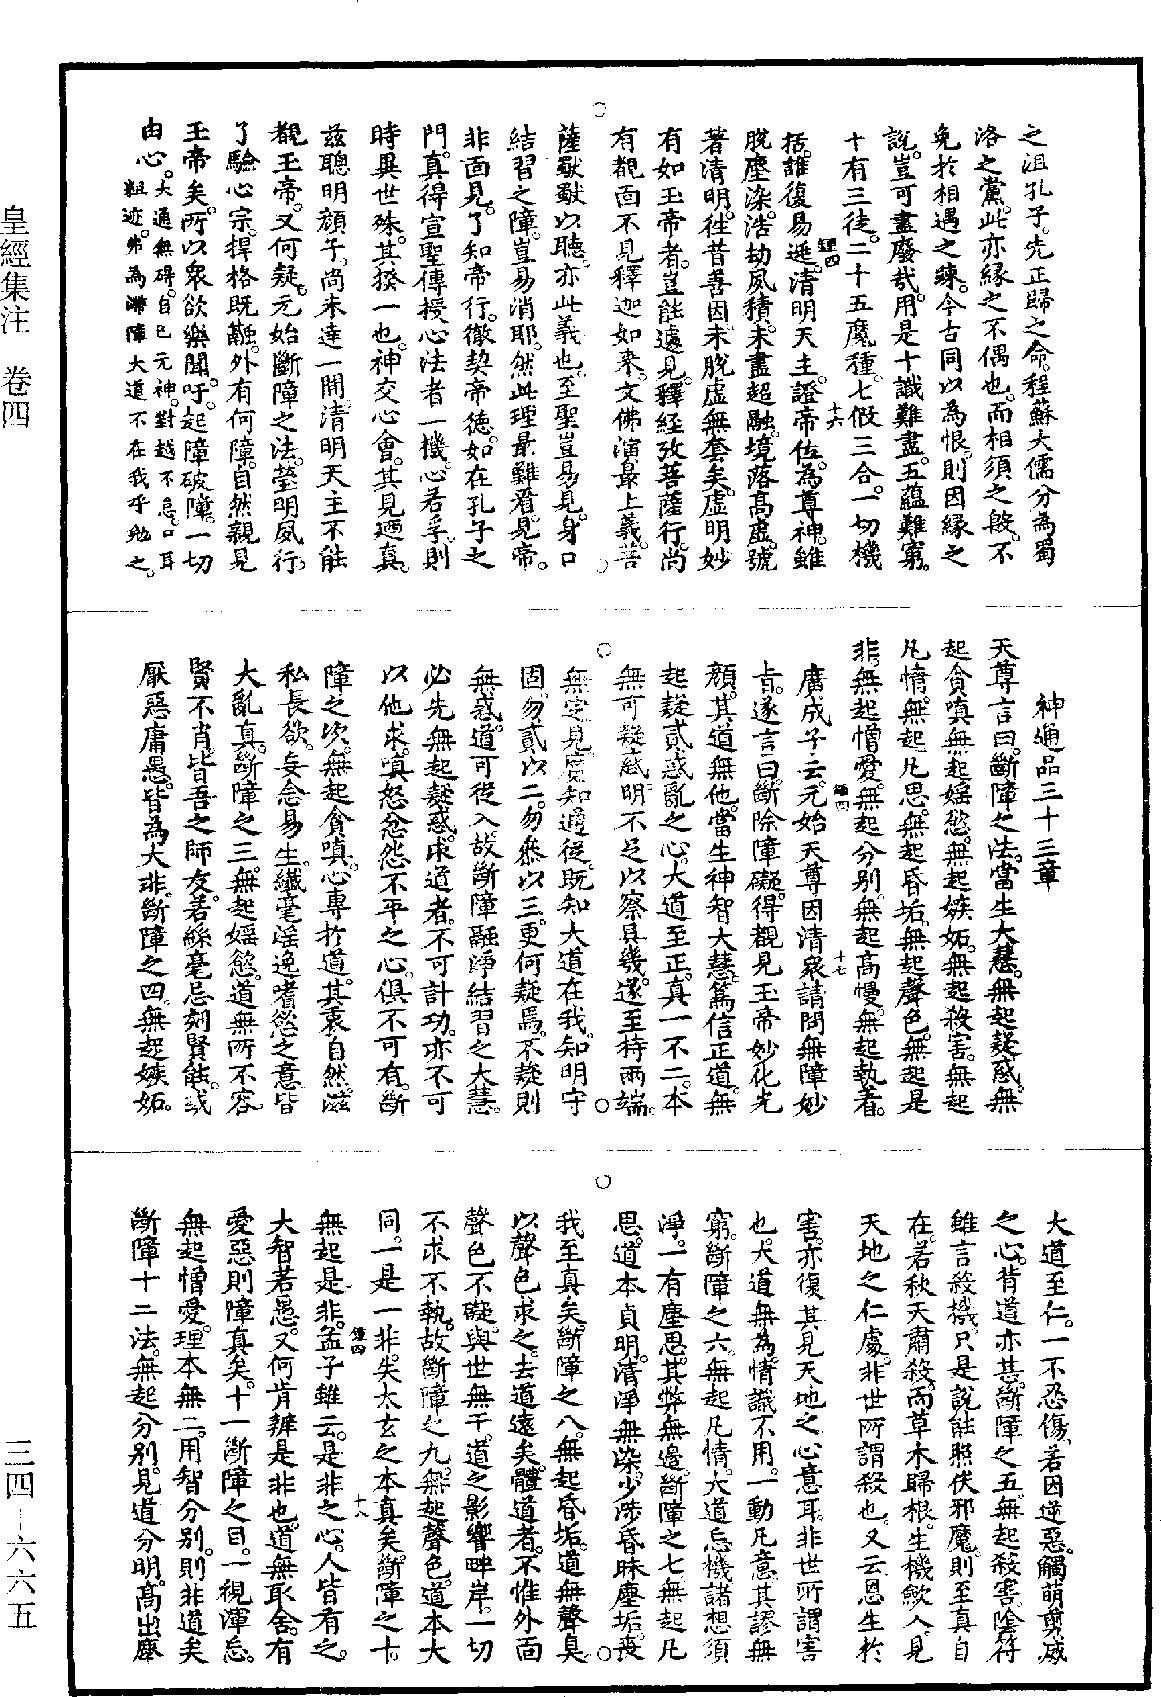 皇經集注　卷四
三四－六六五
之沮孔子。先正歸之命。程蘇大儒分為蜀
洛之黨。此亦緣之不偶也。而相須之殷。不
免於相遇之疎。今古同以為恨。則因緣之
說。豈可盡廢哉。用是十識難盡。五蘊難窮。
十有三徒。二十五魔。種七假三合。一切機
括。誰復易遜。清明天主。證帝佐。為尊神。雖
脫塵染。浩劫夙積。未盡超融。境落高虛。號
著清明。往昔善因。未脫虛無套矣。虛明妙
有如玉帝者。豈能遽見。釋經攷菩薩行。尚
有覩面不見釋迦如來。文佛演最上義。菩
薩獃獃以聽。亦此義也。至聖豈易見。身口
結習之障。豈易消耶。然此理最難看。見帝。
非面見。了知帝行。徹契帝德。如在孔子之
門。真得宣聖傳授心法者一機。心若孚。則
時異世殊。其揆一也。神交心會。其見迺真。
茲聰明顏子。尚未達一間。清明天主不能
覩玉帝。又何疑。元始斷障之法。瑩明夙行。
了驗心宗。捍格既融。外有何障。自然親見
玉帝矣。所以衆欲樂聞。吁。起障破障。一切
由心。大通無碍。自己元神。對越不怠。口耳
粗迹。弗為滯障大道不在我乎勉之。
神通品三十三章
天尊言曰。斷障之法。當生大慧。無起疑惑。無
起貪嗔。無起婬慾。無起嫉妬。無起殺害。無起
凡情。無起凡思。無起昏垢。無起聲色。無起是
非。無起憎愛。無起分別。無起高慢。無起執着。
廣成子云。元始天尊因清衆請問無障妙
旨。遂言曰。斷除障礙。得覩見玉帝妙化光
顏。其道無他。當生神智大慧。篤信正道。無
起疑貳惑亂之心。大道至正。真一不二。本
無可疑惑。明不足以察其幾。遂至持兩端。
無定見。寬知適從。既知大道在我。知明守
固。勿貳以二。勿叅以三。更何疑焉。不疑則
無惑。道可從入。故斷障融淨結習之大慧。
必先無起疑惑。求道者。不可計功。亦不可
以他求。嗔怒忿怨不平之心。俱不可有。斷
障之次。無起貪嗔。心專於道。其衷自然。滋
私長欲。妄念易生。纖毫淫逸嗜慾之意。皆
大亂真。斷障之三。無起婬慾。道無所不容。
賢不肖。皆吾之師友。若絲毫忌刻賢能。或
厭惡庸愚。皆為大非。斷障之四。無起嫉妬。
大道至仁。一不忍傷。若因逆惡。觸萌剪滅
之心。背道亦甚。斷障之五。無起殺害。陰符
雖言殺機。只是說能照伏邪魔。則至真自
在。若秋天肅殺。而草木歸根。生機歛入。見
天地之仁處。非世所謂殺也。又云恩生於
害。亦復其見天地之心意耳。非世所謂害
也。大道無為。情識不用。一動凡意其謬無
窮。斷障之六。無起凡情。大道忘機諸想須
淨。一有塵思。其弊無邊。斷障之七無起凡
思。道本貞明。清淨無染。少涉昏昧塵垢。喪
我至真矣。斷障之八。無起昏垢。道無聲臭。
以聲色求之。去道遠矣。體道者。不惟外面
聲色不礙。與世無干。道之影響畔岸。一切
不求不執。故斷障之九。無起聲色。道本大
同。一是一非。失太玄之本真矣。斷障之十。
無起是非。孟子雖云。是非之心。人皆有之。
大智若愚。又何肯辨是非也。道無取舍。有
愛惡則障真矣。十一斷障之目。一視渾忘。
無起憎愛。理本無二。用智分別。則非道矣
斷障十二法。無起分別。見道分明。高出塵